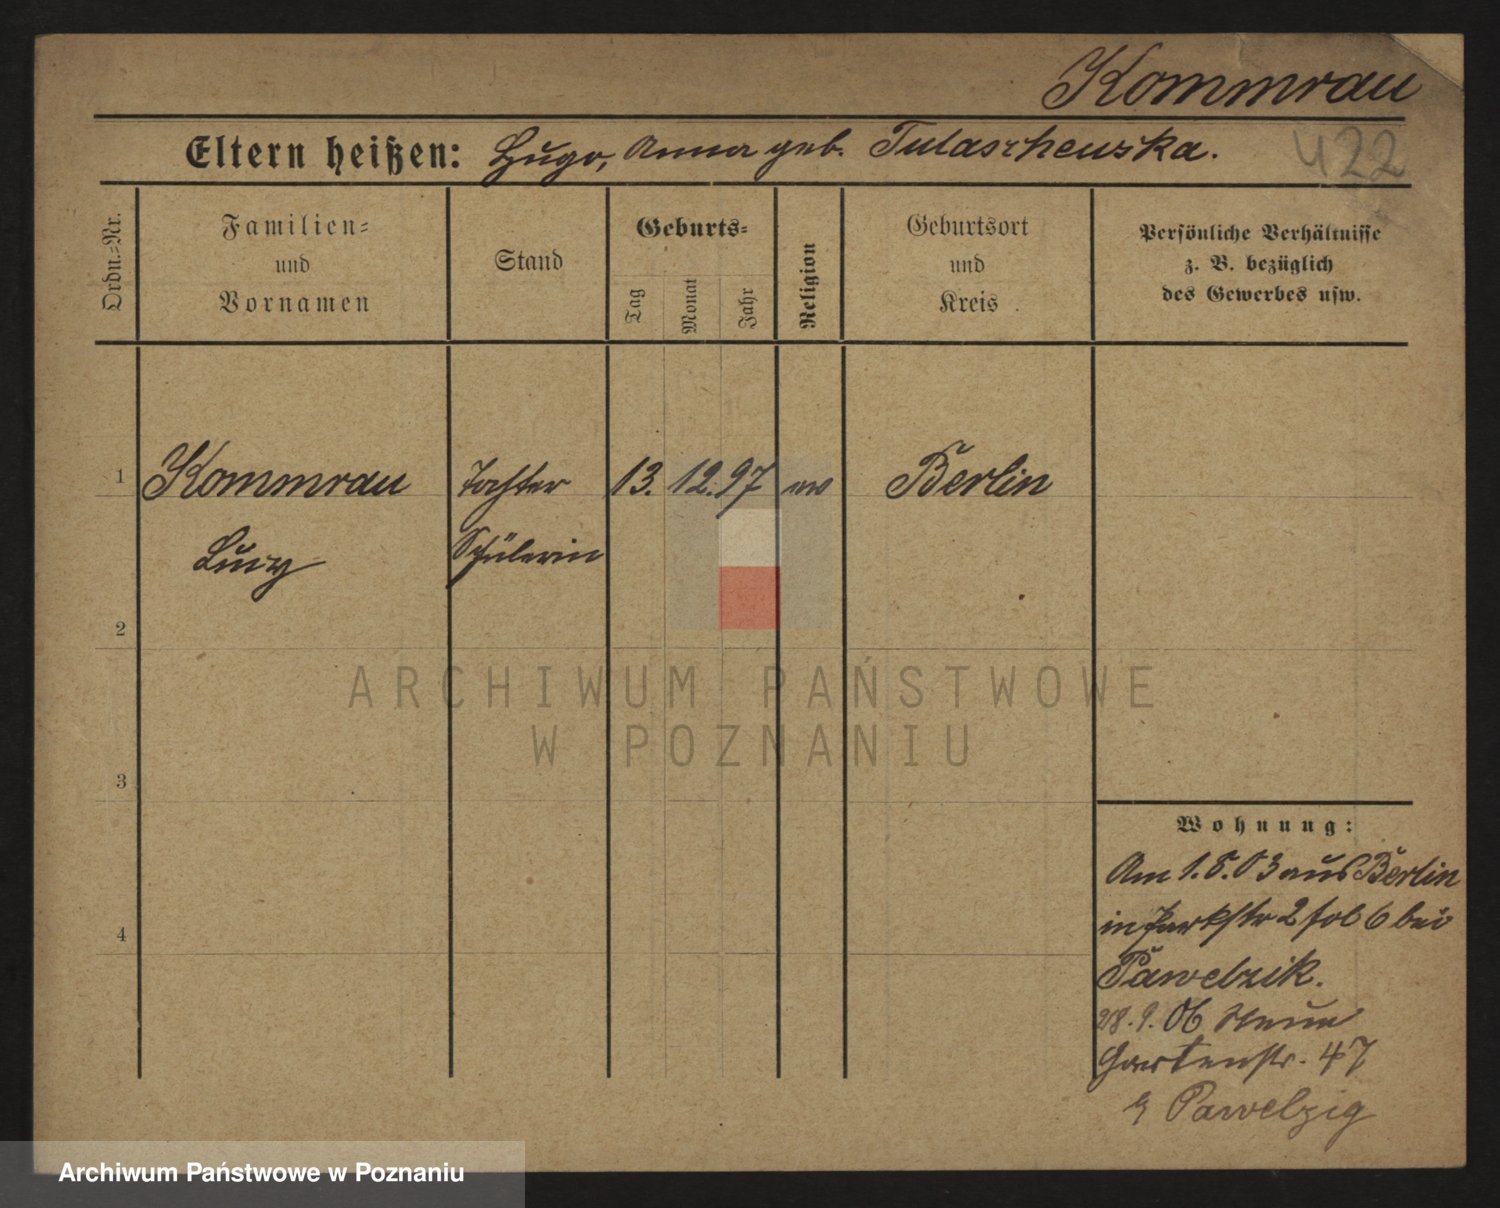 Kommrau
422
Eltern heißen: Hugo, Anna geb. Tulaschewska.
Ordn.-Nr.
Familien-
und
Vornamen
Stand
Geburts-
Tag
Monat
Jahr
Religion
Geburtsort
und
Kreis
Persönliche Verhältnisse
z. B. bezüglich
des Gewerbes usw.
1 Kommrau Tochter 13. 12. 97 ev Berlin
Lucy Schülerin
2
3
4
Wohnung:
Am 1.5.03 aus Berlin
in Parkstr 2 fol 6 bei
Pawelzik.
28.9.06
Gartenstr. 47
Pawelzig
ARCHIWUM PAŃSTWOWE
W POZNANIU
Archiwum Państwowe w Poznaniu